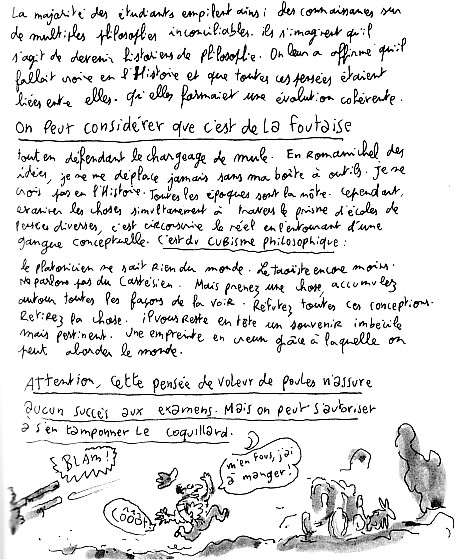 La majorité des étudiants empilent ainsi des connaissances sur
de multiples philosophes inconciliables. ils s'imaginent qu'il
s'agit de devenir historiens de philosophie. On leur a affirmé qu'il
fallait croire en l'Histoire et que toutes ces pensées étaient
liées entre elles. Qu'elles formaient une évolution cohérente.
On Peut considérer que c'est de La foutaise
tout en défendant le chargeage de mule. En Romanichel des
idées, je ne me déplace jamais sans ma boîte à outils. Je ne
crois pas en l'Histoire. Toutes les époques sont la nôtre. Cependant,
examiner les choses simultanément à travers le prisme d'écoles de
pensées diverses, c'est circonscrire le réel en l'entourant d'une
gangue conceptuelle. C'est du CUBISME PHILOSOPHIQUE :
le platonicien ne sait Rien du monde. Le taoïste encore moins.
Ne parlons pas du Cartésien. Mais prenez une chose, accumulez
autour toutes les façons de la voir. Réfutez toutes ces conceptions.
Retirez la chose. il vous reste en tête un souvenir imbécile
mais pertinent. Une empreinte en creux grâce à laquelle on
peut aborder le monde.
Attention, Cette pensée de voleur de poules n'assure
aucun succès aux examens. Mais on peut s'autoriser
à s'en tamponner Le coquillard.
BLAM!
m'en fous, j'ai
à manger!